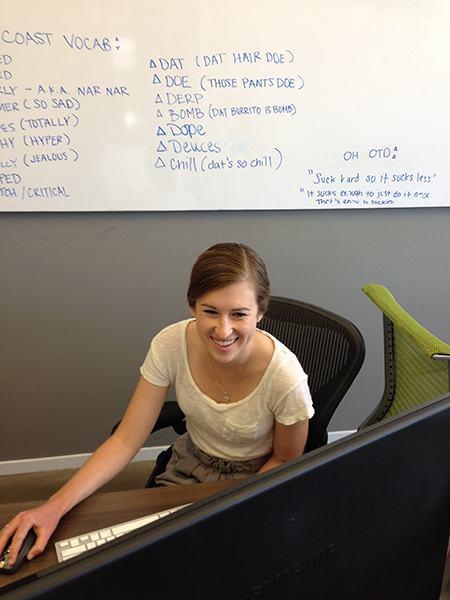 COAST VOCAB
(SO SAD)
(TOTALLY)
(HYPER)
(JEALOUS)
/CRITICAL
- A.K.A. NAR NAR
DAT (DAT HAIR DOE)
DOE (THOSE PANTS DOE)
DERP
BOMB (DAT BURRITO IS BOMB)
Dope
Deuces
Chill (dat's so chill)
OH OTD
"Suck hard so it sucks less"
"It sucks enough to just do it once
That's enough sucking
SAMSUNG